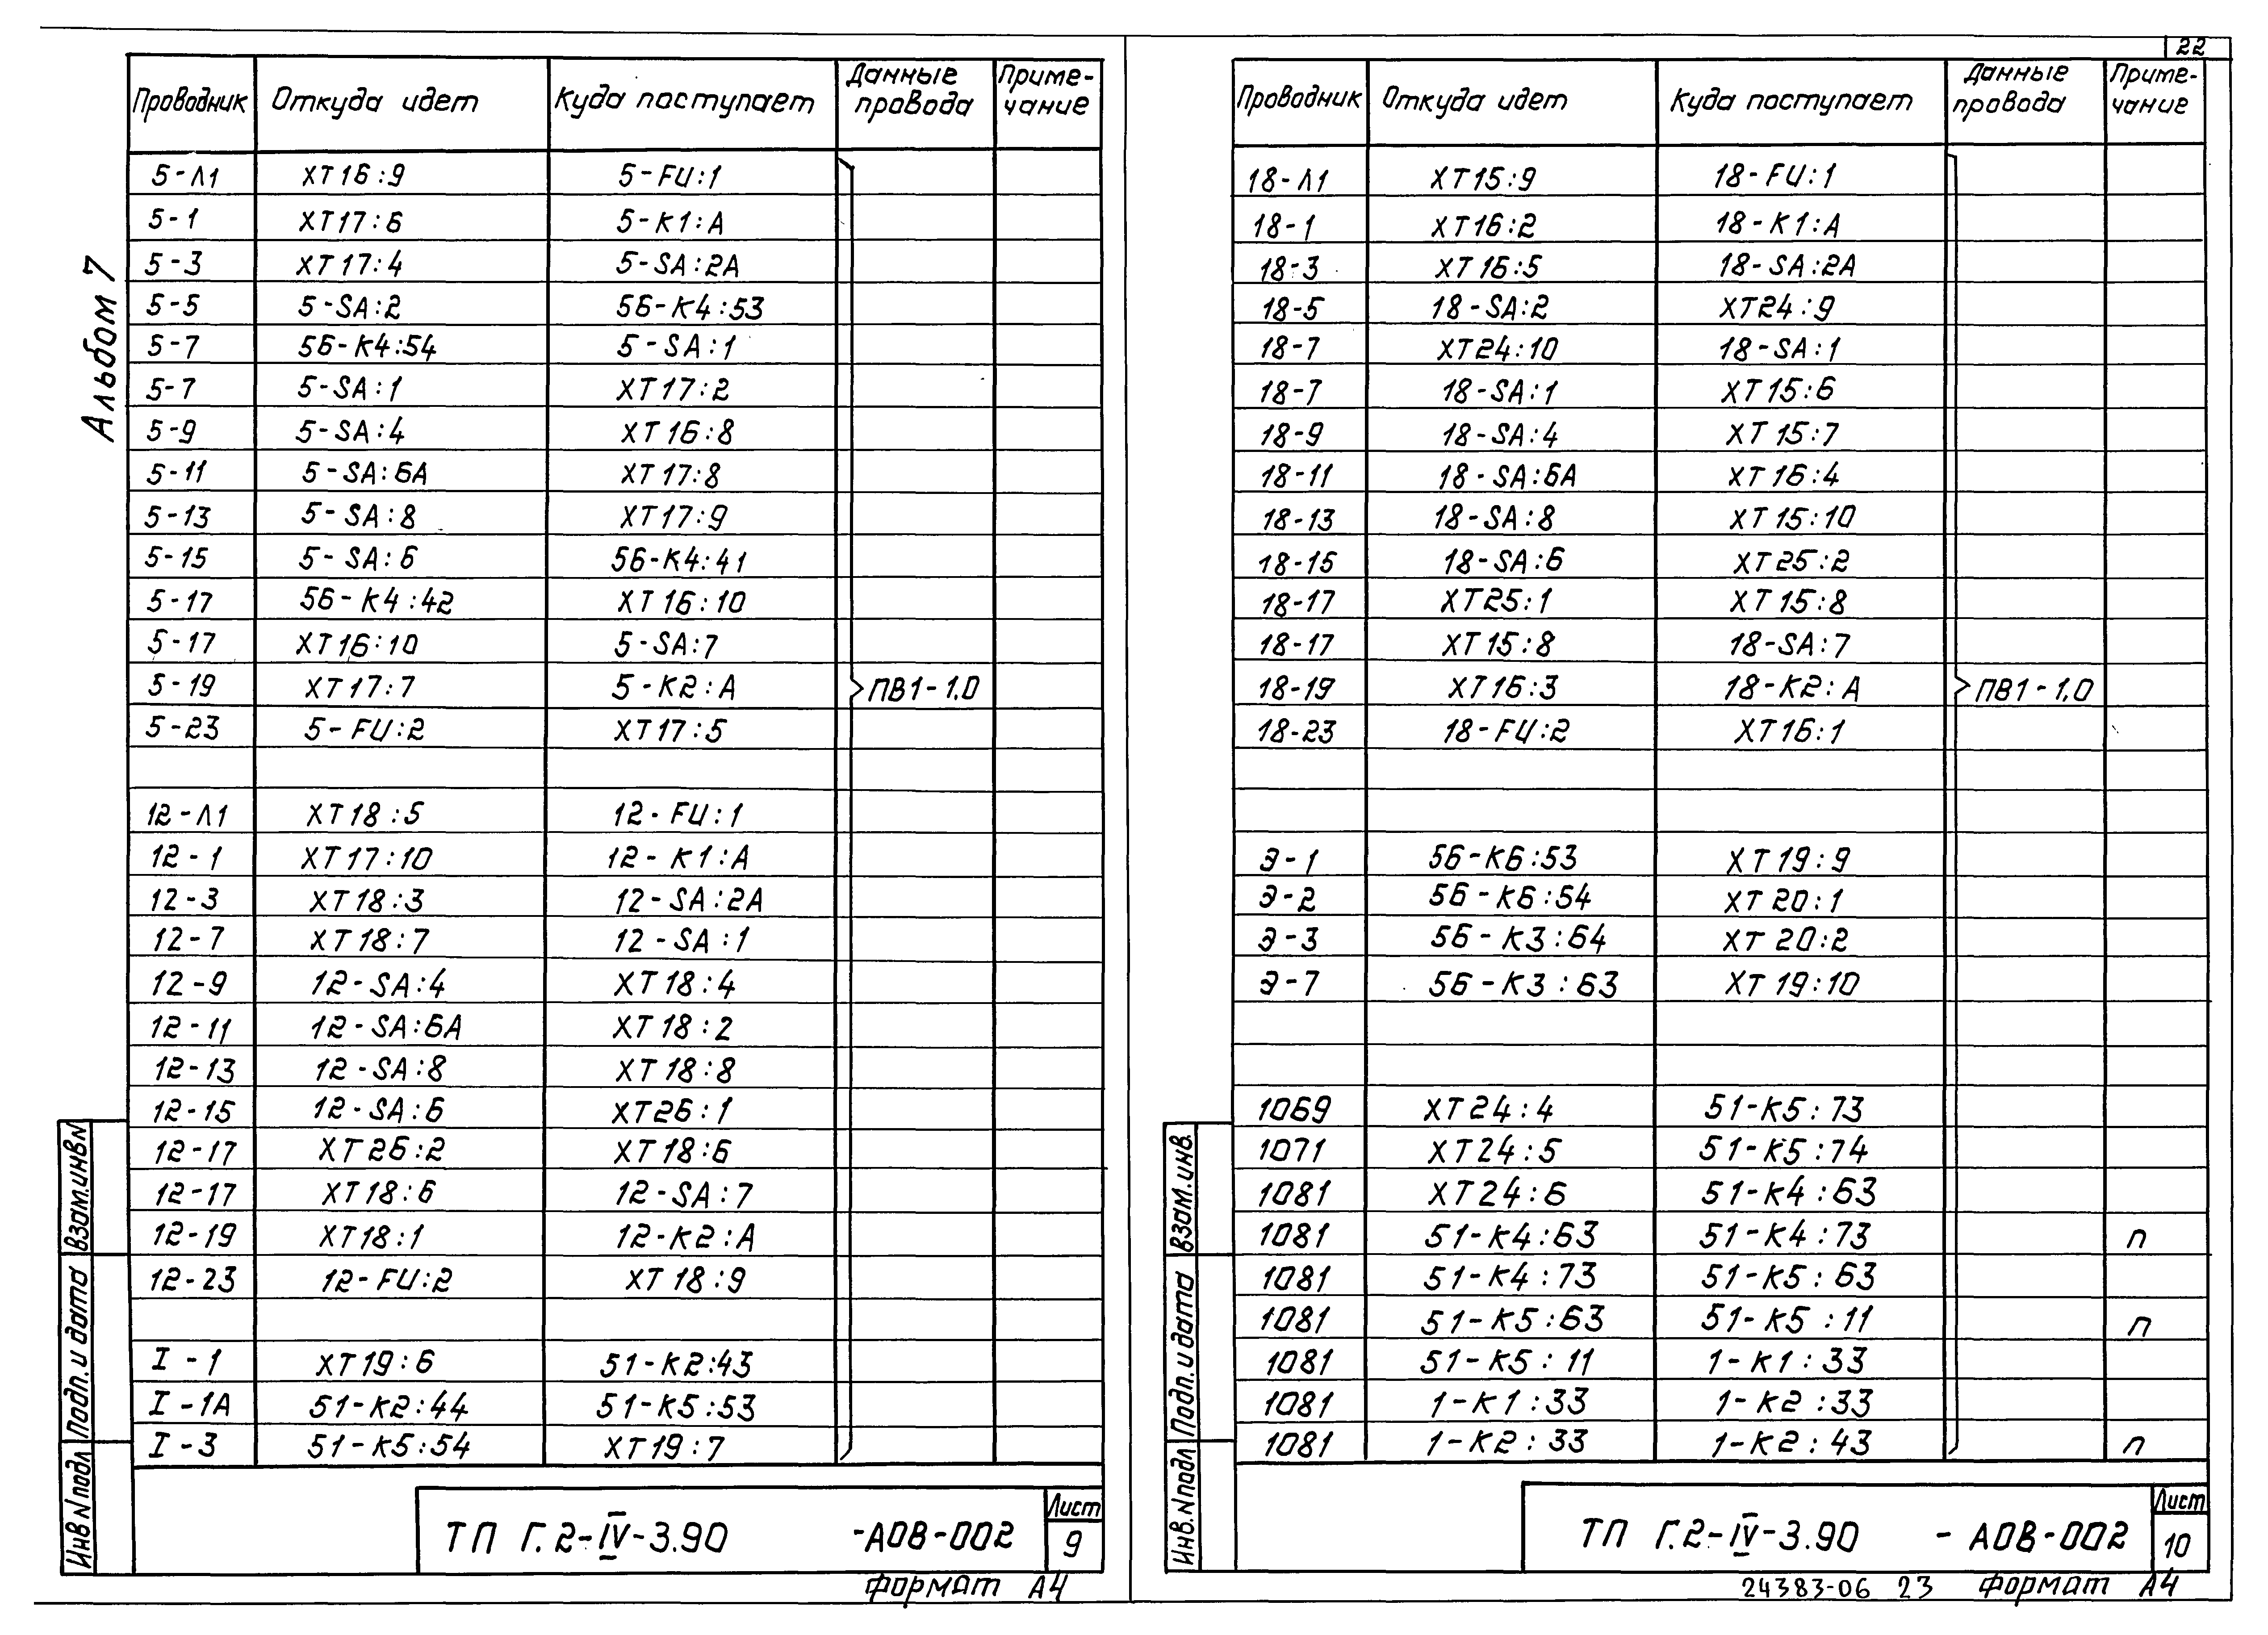 22
Альбом 7
Проводник Откуда идет Куда поступает Данные провода Приме-чание
5-Л1 ХТ16:9 5-FU:1
5-1 ХТ17:6 5-К1:А
5-3 ХТ17:4 5-SA:2А
5-5 5-SA:2 5Б-К4:53
5-7 5Б-К4:54 5-SA:1
5-7 5-SA:1 ХТ17:2
5-9 5-SA:4 ХТ16:8
5-11 5-SA:6А ХТ17:8
5-13 5-SA:8 ХТ17:9
5-15 5-SA:6 5Б-К4:41
5-17 5Б-К4:42 ХТ16:10
5-17 ХТ16:10 5-SA:7
5-19 ХТ17:7 5-К2:А ПВ1-1,0
5-23 5-FU:2 ХТ17:5
12-Л1 ХТ18:5 12-FU:1
12-1 ХТ17:10 12-К1:А
12-3 ХТ18:3 12-SA:2А
12-7 ХТ18:7 12-SA:1
12-9 12-SA:4 ХТ18:4
12-11 12-SA:6А ХТ18:2
12-13 12-SA:8 ХТ18:8
12-15 12-SA:6 ХТ26:1
12-17 ХТ26:2 ХТ18:6
12-17 ХТ18:6 12-SA:7
12-19 ХТ18:1 12-К2:А
12-23 12-FU:2 ХТ18:9
I-1 ХТ19:6 51-К2:43
I-1А 51-К2:44 51-К5:53
I-3 51-К5:54 ХТ19:7
Взам.инв.N
Подп. и дата
Инв N подл
ТП Г.2-IV-3.90 -АОВ-002
Лист
9
Формат А4
Проводник Откуда идет Куда поступает Данные провода Приме-чание
18-Л1 ХТ15:9 18-FU:1
18-1 ХТ16:2 18-К1:А
18-3 ХТ16:5 18-SA:2А
18-5 18-SA:2 ХТ24:9
18-7 ХТ24:10 18-SA:1
18-7 18-SA:1 ХТ15:6
18-9 18-SA:4 ХТ15:7
18-11 18-SA:6А ХТ16:4
18-13 18-SA:8 ХТ15:10
18-15 18-SA:6 ХТ25:2
18-17 ХТ25:1 ХТ15:8
18-17 ХТ15:8 18-SA:7
18-19 ХТ16:3 18-К2:А ПВ1-1,0
18-23 18-FU:2 ХТ16:1
Э-1 5Б-К6:53 ХТ19:9
Э-2 5Б-К6:54 ХТ20:1
Э-3 5Б-К3:64 ХТ20:2
Э-7 5Б-К3:63 ХТ19:10
1069 ХТ24:4 51-К5:73
1071 ХТ24:5 51-К5:74
1081 ХТ24:6 51-К4:63
1081 51-К4:63 51-К4:73 п
1081 51-К4:73 51-К5:63
1081 51-К5:63 51-К5:11 п
1081 51-К5:11 1-К1:33
1081 1-К1:33 1-К2:33
1081 1-К2:33 1-К2:43 п
Взам.инв.
Подп. и дата
Инв. N подл
ТП Г.2-IV-3.90 -АОВ-002
Лист
10
24383-06 23 Формат А4